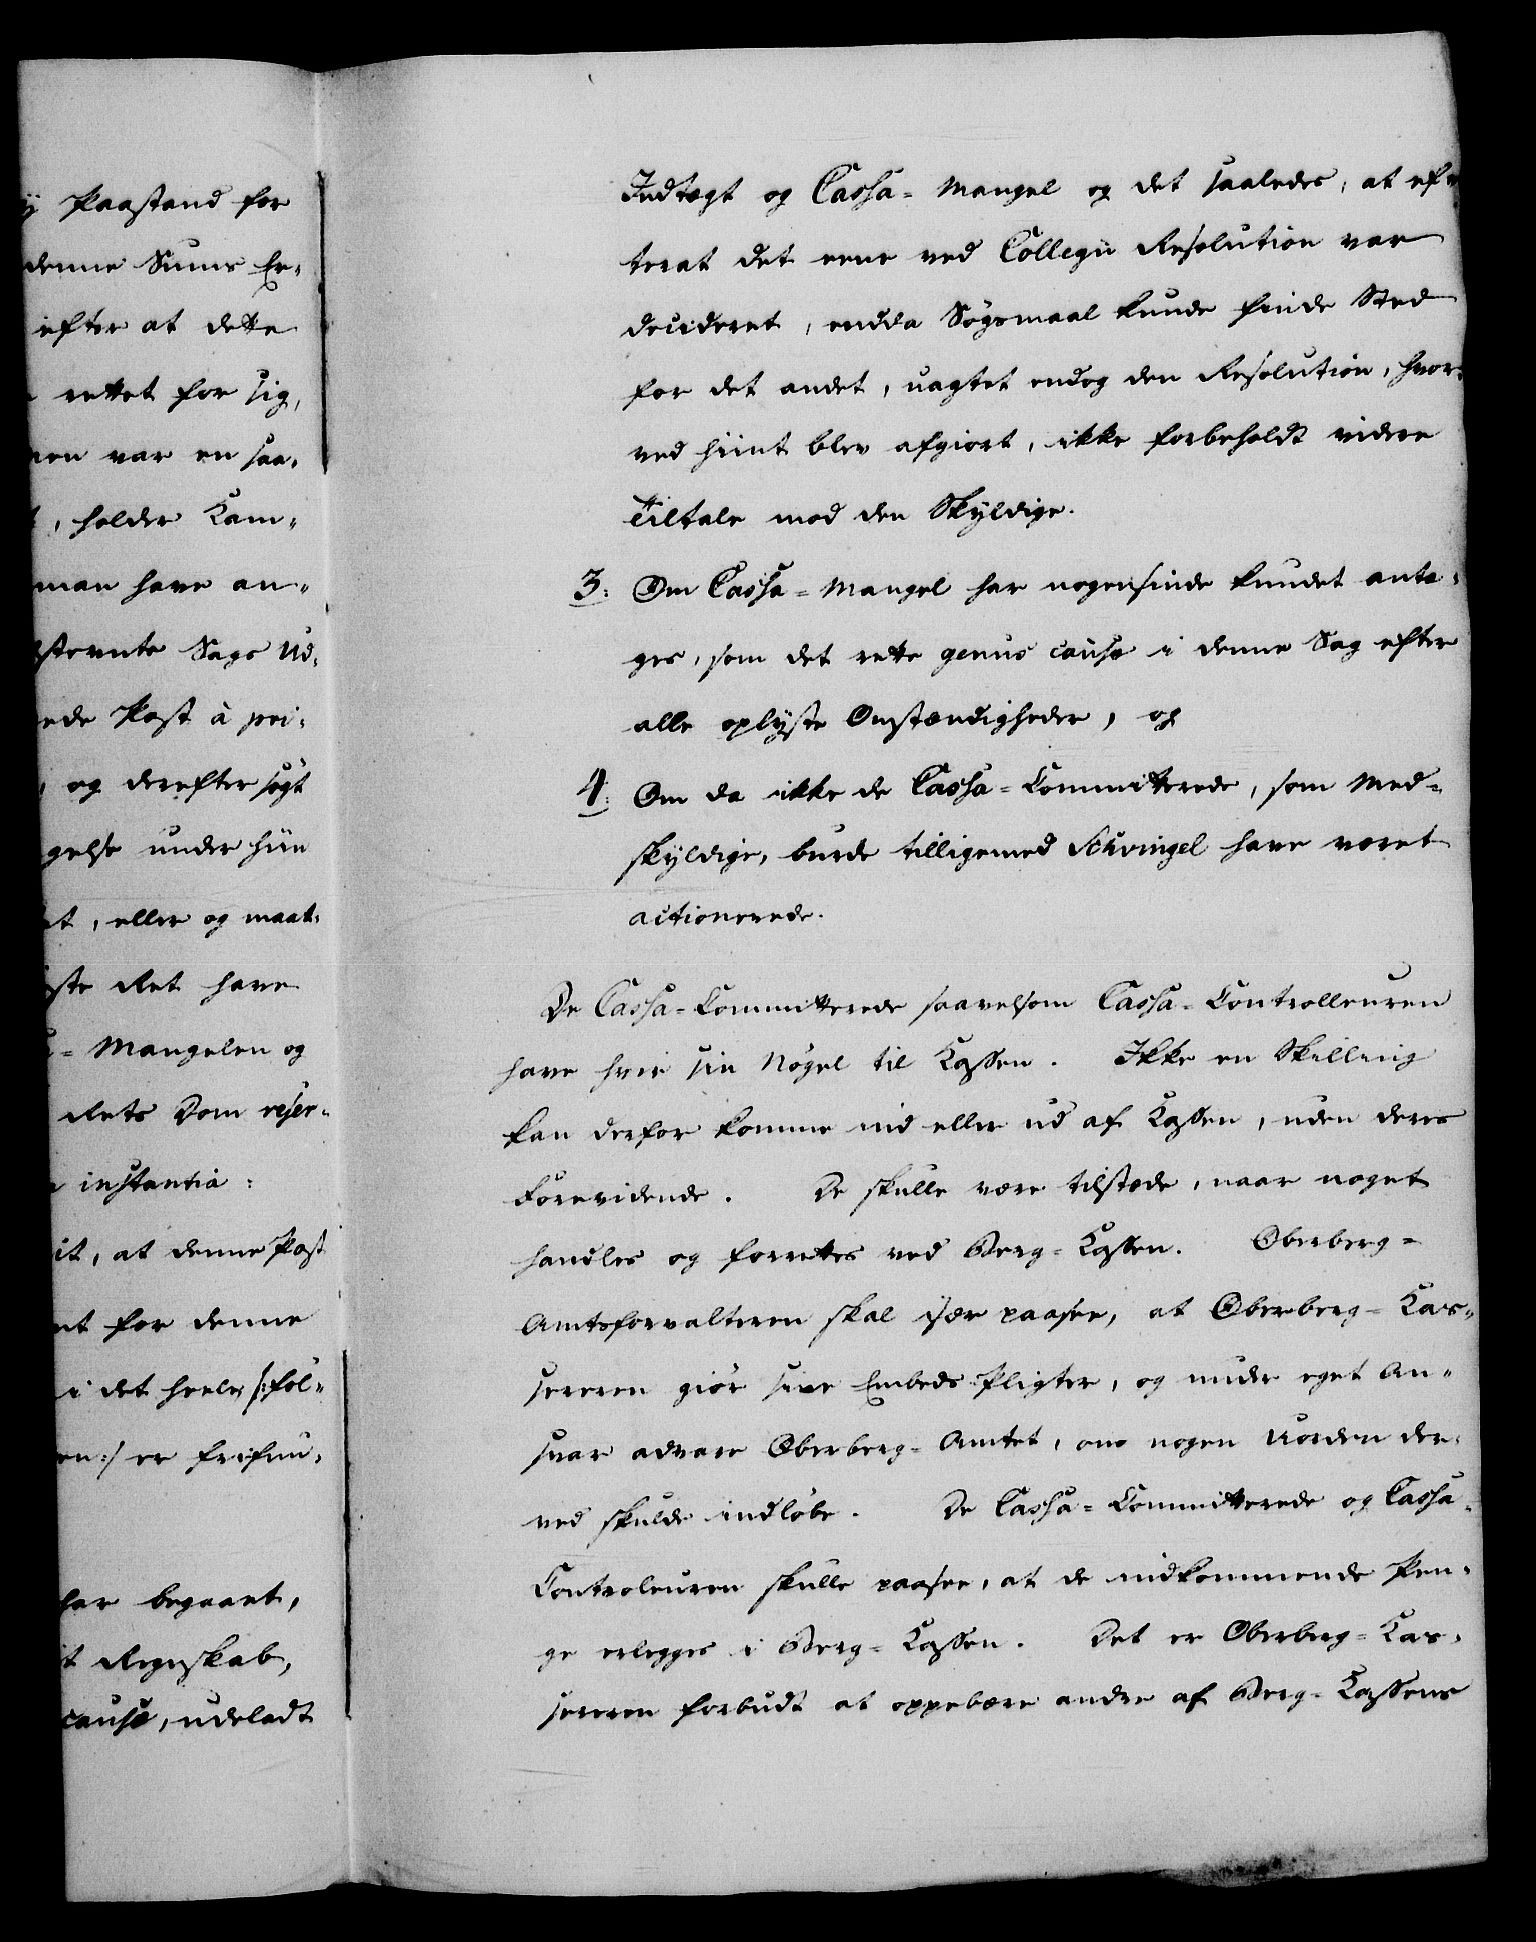 Paastand for
denne Sums Er-
efter at dette
rettet for sig,
var en saa-
, holder Kam-
man have an-
Sags Ud-
Post à pri-
og derefter søgt
under hiin
, eller og maat-
Ret have
= Mangelen og
Rets Dom reser-
instantia:
, at denne Post
for denne
i det heele /:føl-
:/ er frifun-
har begaaet,
Regnskab,
causæ, udeladt
Indtægt og Cassa=Mangel og det saaledes, at ef-
terat det eene ved Collegii Resolution var
decideret, endda Søgsmaal kunde finde Sted
for det andet, uagtet endog den Resolution, hvor-
ved hiint blev afgiort, ikke forbeholdt videre
Tiltale mod den Skyldige.
3: Om Cassa=Mangel har nogensinde kundet anta-
ges, som det rette genus causæ i denne Sag efter
alle oplyste Omstændigheder, og
4: Om da ikke de Cassa=Committerede, som Med-
skyldige, burde tilligemed Schvingel have været
actionerede.
De Cassa=Committerede saavelsom Cassa=Controlleuren
have hver sin Nøgel til Kassen. Ikke en Skilling
kan derfor komme ind eller ud af Kassen, uden deres
Forevidende. De skulle være tilstæde, naar noget
handles og forrettes ved Berg=Kassen. Oberberg=
Amtsforvalteren skal især paasee, at Oberberg=Kas-
sereren giør sine Embeds Pligter, og under eget An-
svar advare Oberberg=Amtet, om nogen Uorden der-
ved skulde indløbe. De Cassa=Committerede og Cassa-
Controleuren skulle paasee, at de indkommende Pen-
ge erlegges i Berg=Kassen. Det er Oberberg=Kas-
sereren forbudt at oppebære andre af Berg=Kassens